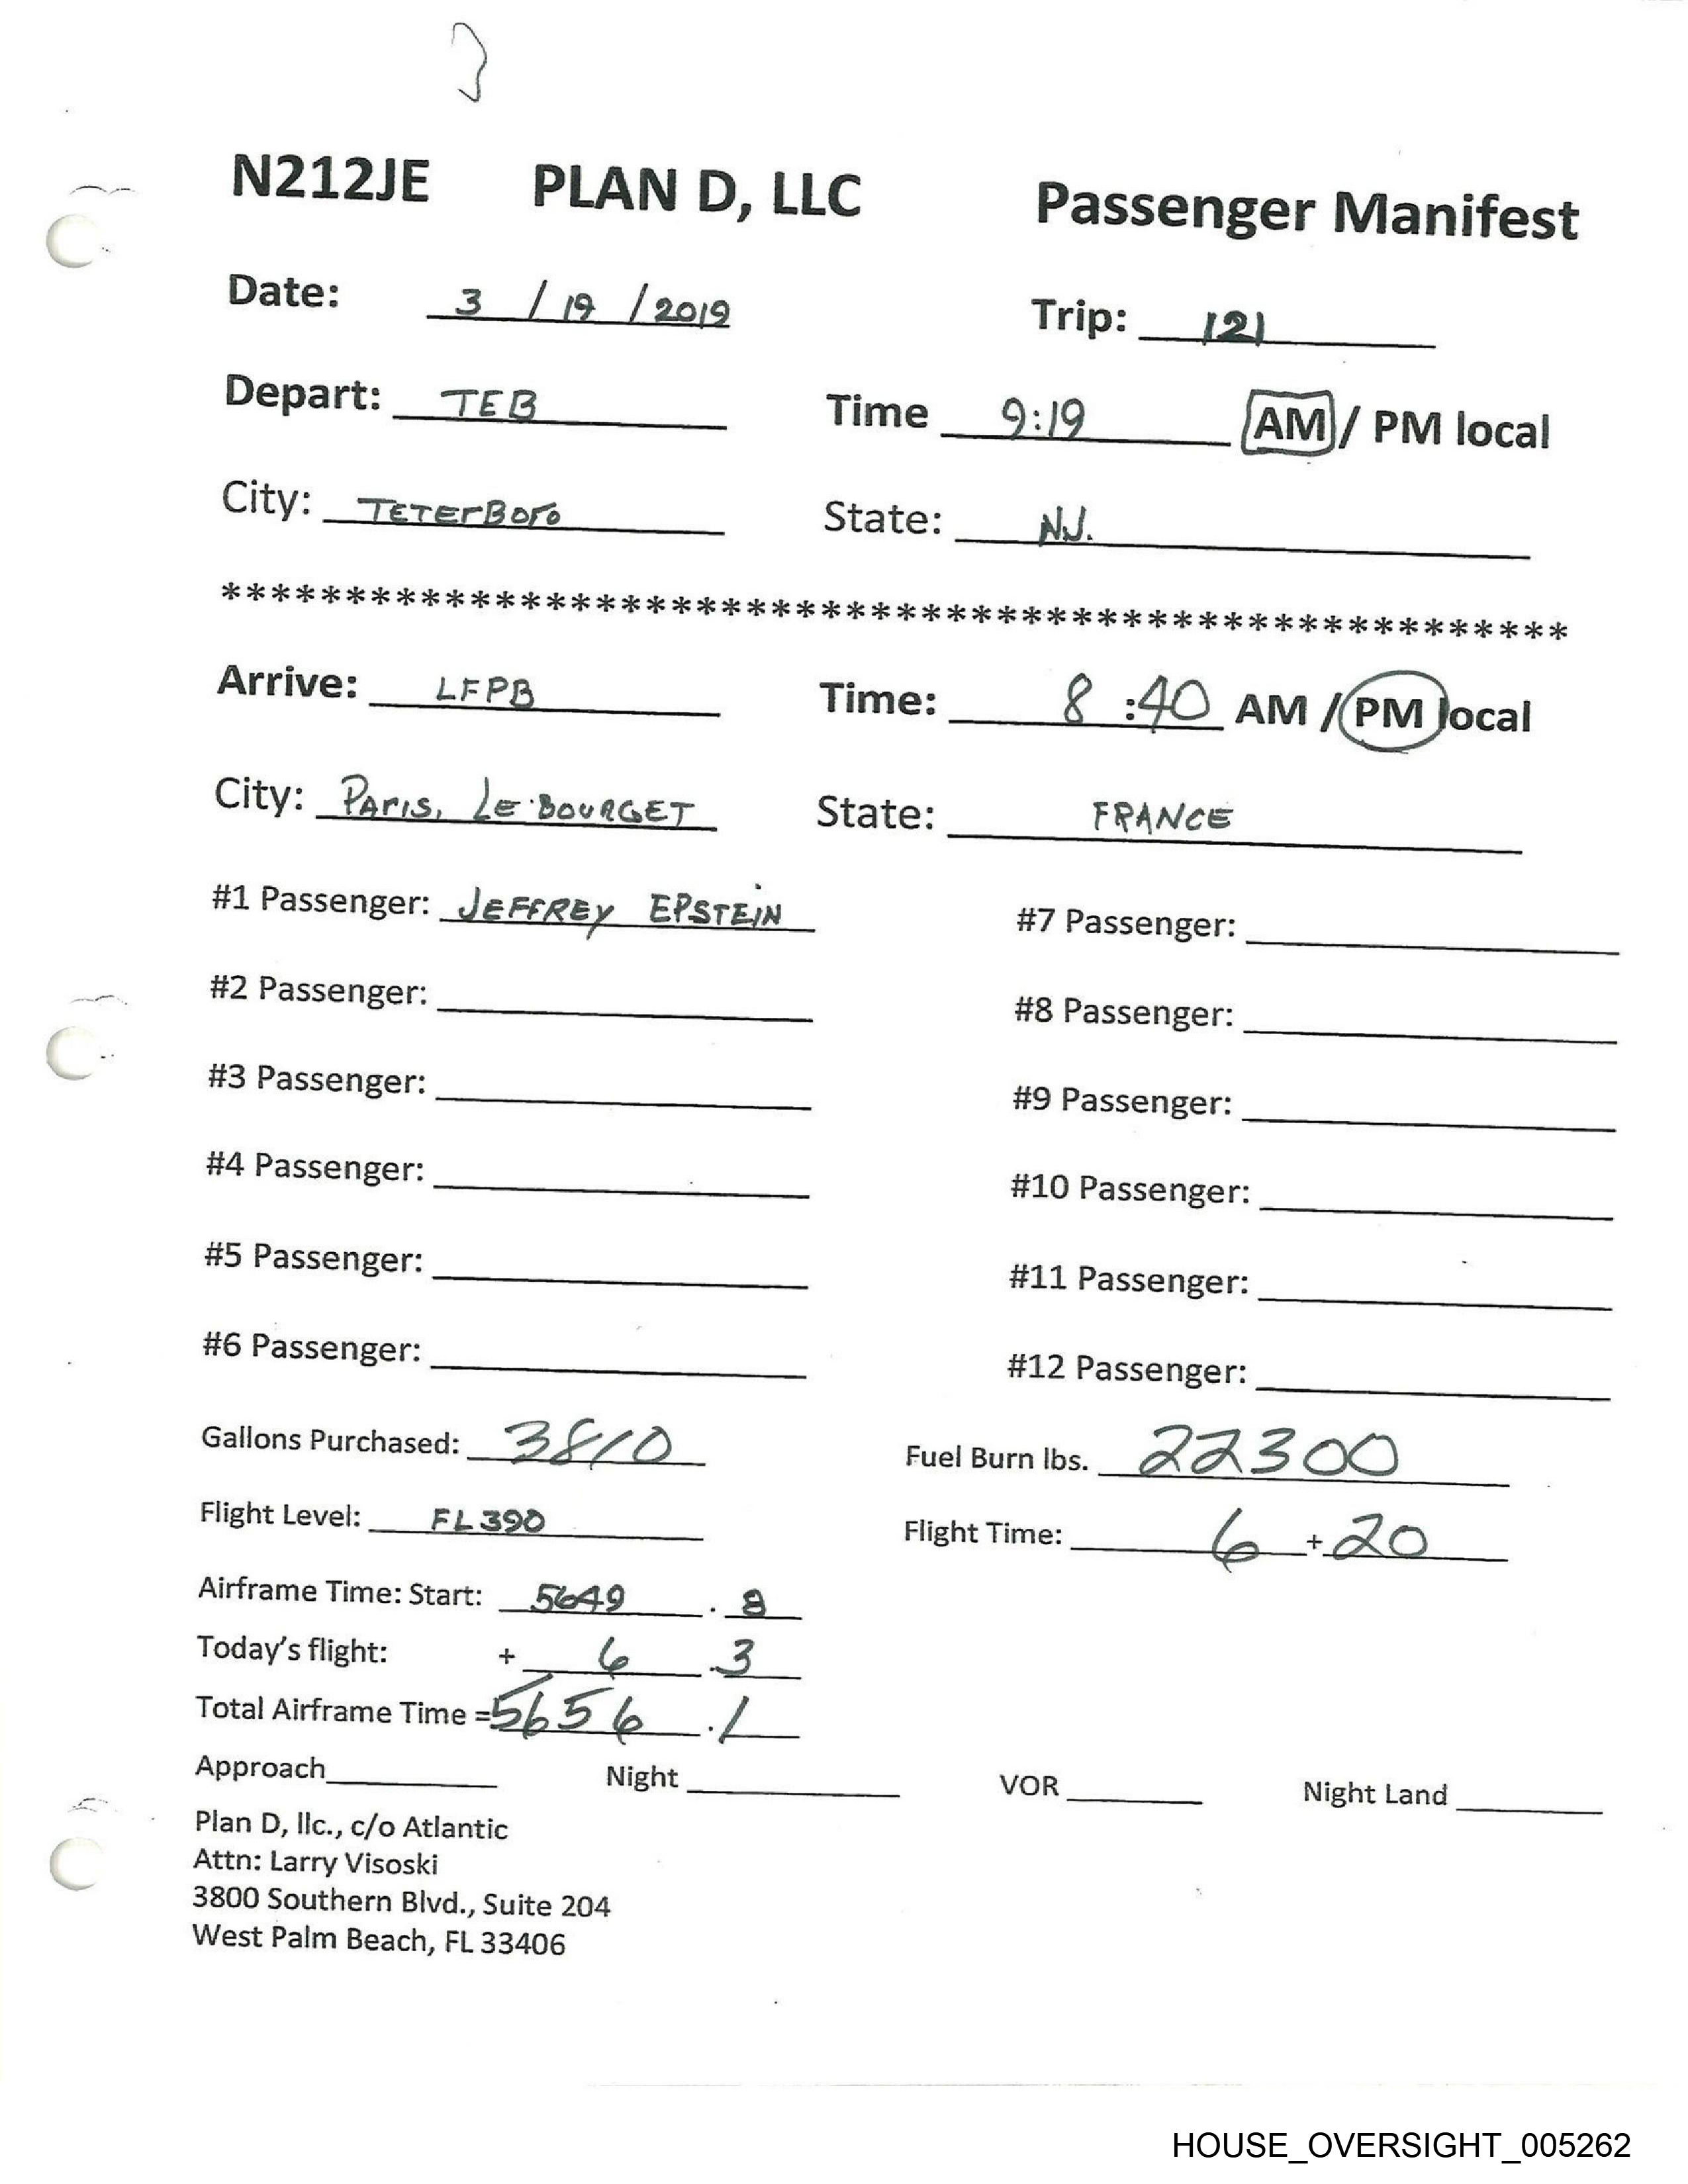 N212JE PLAN D, LLC Passenger Manifest
Date: 3 / 19 / 2019 Trip: 121
Depart: TEB Time 9:19 AM / PM local
City: TETERBORO State: NJ.
******************************************************
Arrive: LFPB Time: 8 :40 AM / PM local
City: PARIS, LE BOURGET State: FRANCE
#1 Passenger: JEFFREY EPSTEIN #7 Passenger:
#2 Passenger: #8 Passenger:
#3 Passenger: #9 Passenger:
#4 Passenger: #10 Passenger:
#5 Passenger: #11 Passenger:
#6 Passenger: #12 Passenger:
Gallons Purchased: 3810 Fuel Burn lbs. 22300
Flight Level: FL390 Flight Time: 6 + 20
Airframe Time: Start: 5649 . 8
Today's flight: + 6 .3
Total Airframe Time = 5656 .1
Approach Night VOR Night Land
Plan D, llc., c/o Atlantic
Attn: Larry Visoski
3800 Southern Blvd., Suite 204
West Palm Beach, FL 33406
HOUSE_OVERSIGHT_005262